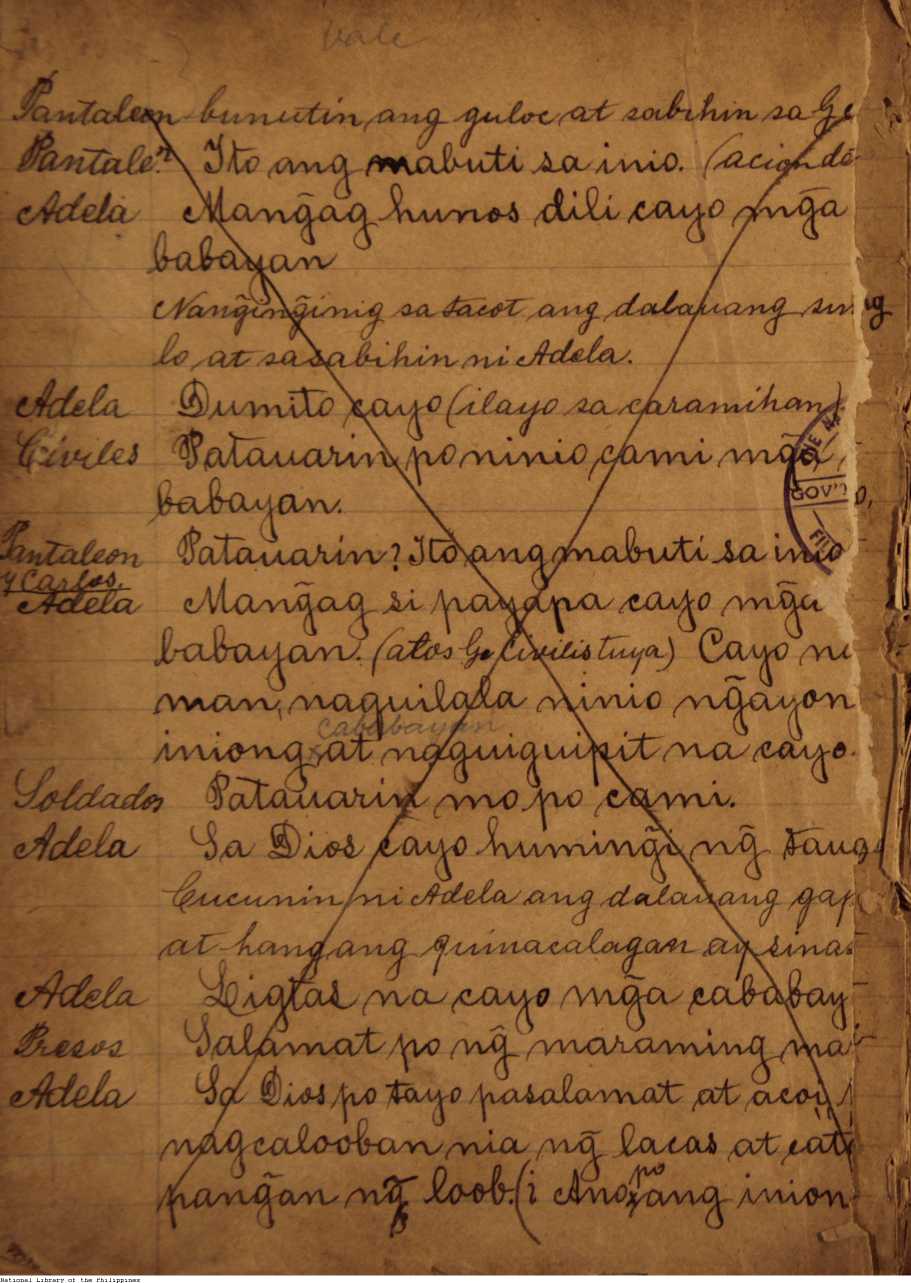 Vale
Pantaleon bunutin ang guloc at sabihin sa Ge
Pantalen Ito ang mabuti sa inio. (acion de
Adela Mang̃ag hunos dili cayo mg̃a
babayan
Nang̃ing̃inig sa tacot ang dalauang
lo at sasabihin ni Adela.
Adela Dumito cayo (ilayo sa caramihan)
Civiles Patauarin po ninio cami mg̃a
babayan.
Pantaleon Patauarin? Ito ang mabuti sa inio
y Carlos.
Adela Mang̃ag si payapa cayo mg̃a
babayan. (a los Ge Civilis tuya) Cayo ni
man, naguilala ninio ng̃ayon
cababayan
iniong at naguiguipit na cayo.
Soldados Patauarin mo po cami.
Adela Sa Dios cayo huming̃i ng̃ taua
Cucunin ni Adela ang dalauang gap
at hangang quinacalagan ay sinas
Adela Ligtas na cayo mg̃a cababay
Presos Salamat po ng̃ maraming ma
Adela Sa Dios po tayo pasalamat at acoi
nagcalooban nia ng̃ lacas at cati
po
pang̃an ng̃ loob. (i Ano ang inion
GOV'T
National Library of the Philippines